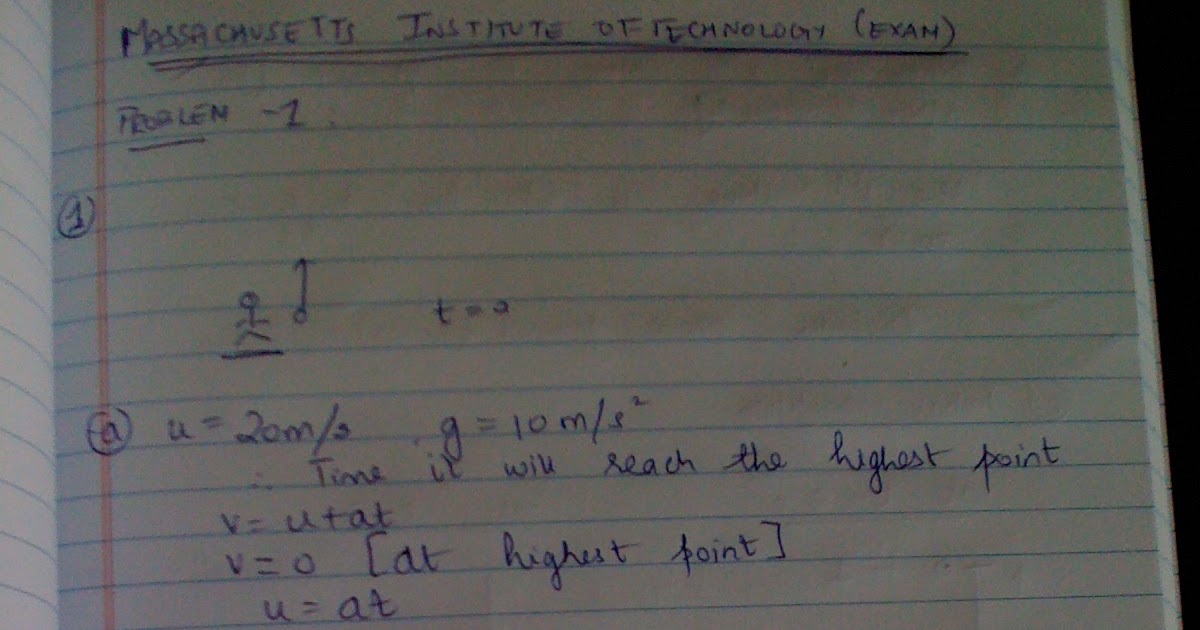 MASSACHUSETTS INSTITUTE OF TECHNOLOGY (EXAM)
PROBLEM -1.
①
t =
ⓐ u = 20m/s . g = 10 m/s²
∴ Time it will reach the highest point
v = u + at
v = 0 [at highest point]
u = at